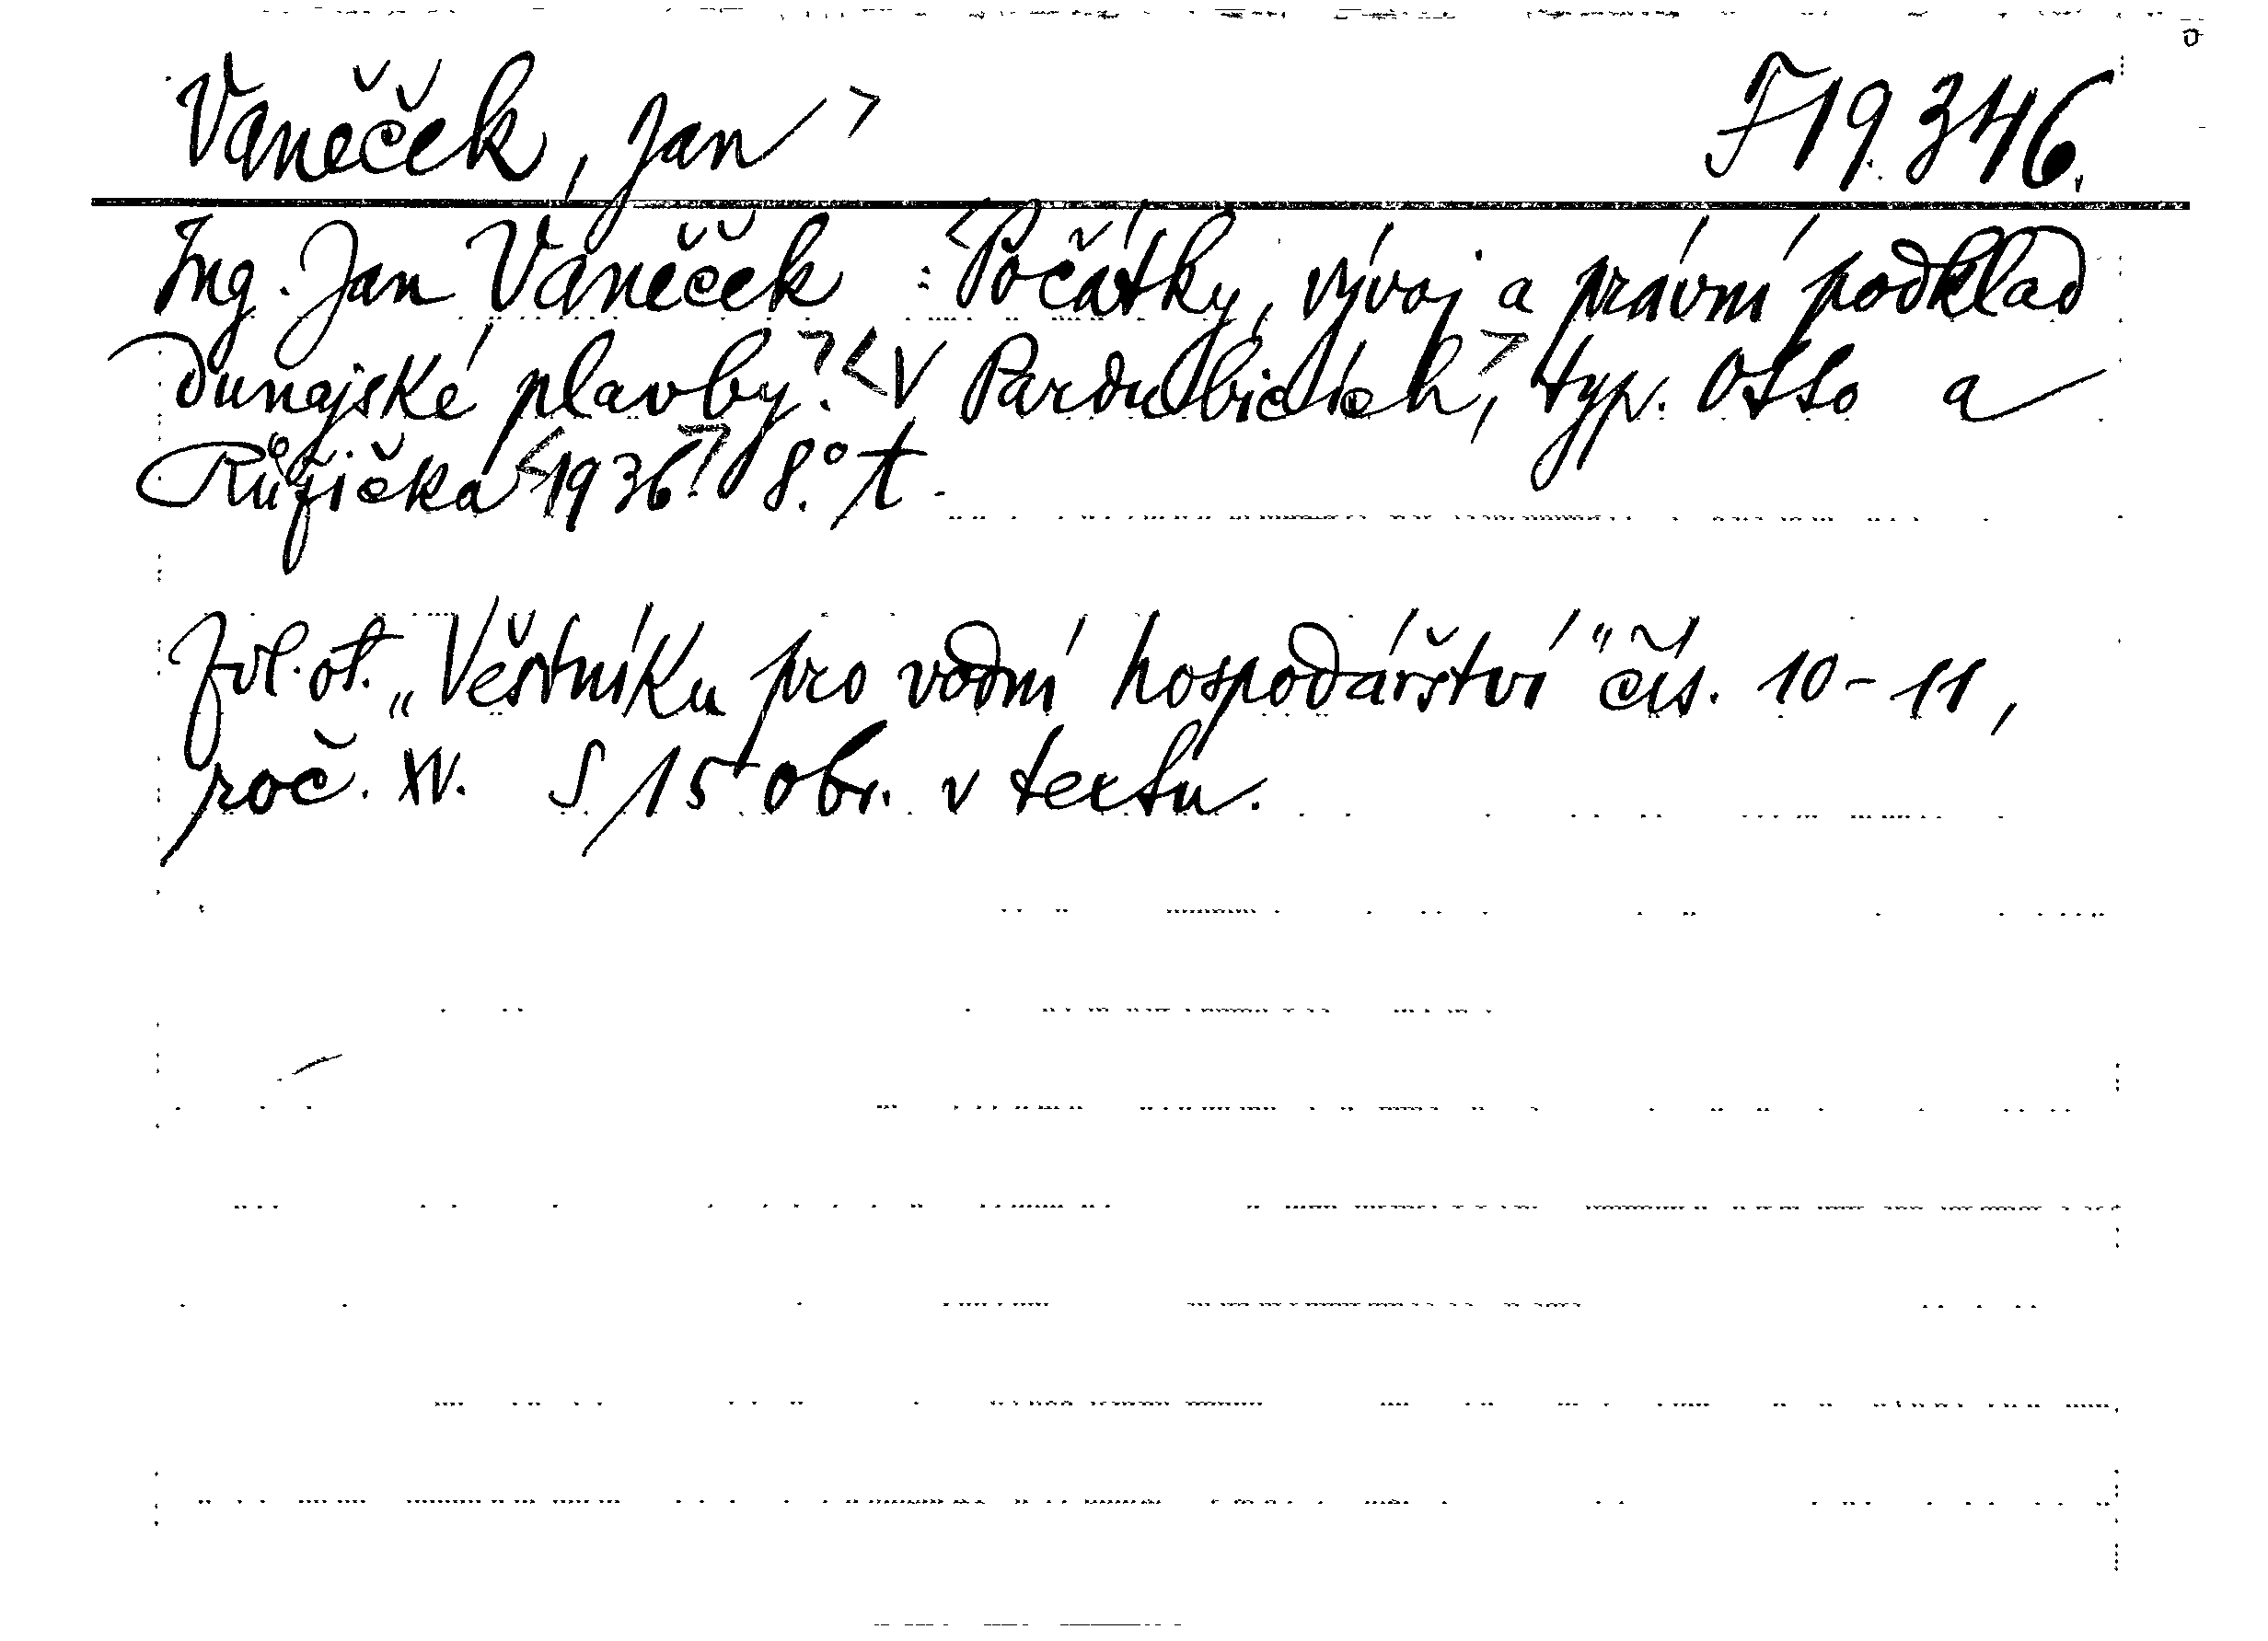 Vaněček, Jan> F 19.346.
Ing. Jan Vaněček : <Počátky, vývoj a právní podklad
dunajské plavby.> <V Pardubicích,> typ. Otto a
Růžička <1936.> 8.° t.
Zvl. ot. „Věstníku pro vodní hospodářství" čís. 10-11,
roč. XV. S 15 obr. v textu.